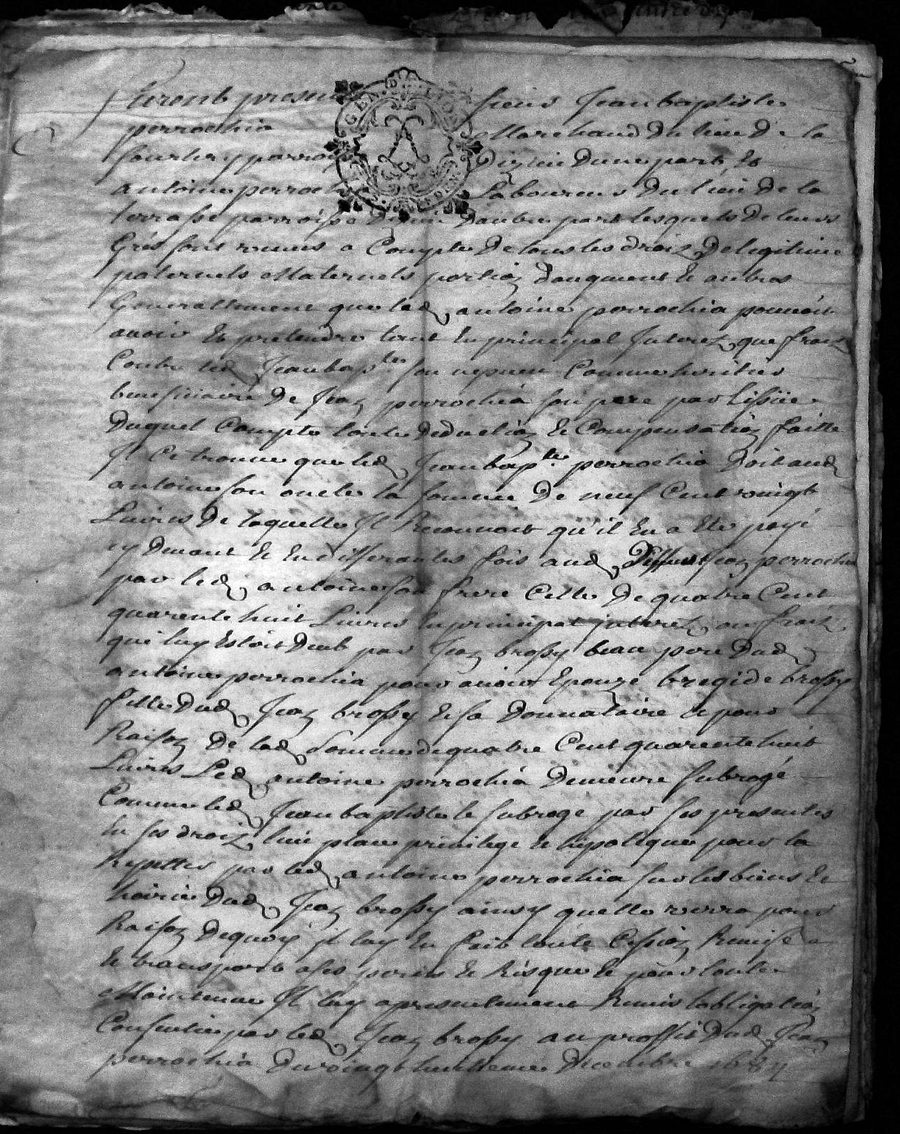 GEN. D. LION
Furent presens sieurs Jean baptiste
perrochia Marchand du lieu de la
parroisse d'une part et
antoine perrochia Laboureur du lieu de la
terrasse parroisse dautre part lesquels de leurs
Grés sont venus a Compte de tous les droiz de legitime
paternels Maternels portion daugment et autres
Generallement que led antoine perrochia pouvoit
avoir et pretendre tant en principal Interez que fraiz
Contre led Jean bapte son nepveu Comme heritier
beneficiaire de Jean perrochia son pere par lissue
Duquel Compte toute deduction et Compensation faitte
Il Ce trouve que led Jean bapte perrochia doit aud
antoine son oncle la somme de neuf Cent vingt
Livres de laquelle Il Reconnoit qu'il en a ete payé
cy devant et en differantes fois aud deffunt Jean perrochia
par led antoine son frere Celle de quatre Cent
quarente huit Livres en principal interez ou fraiz
qui luy Estoit deub par Jean brossy beau pere dud
antoine perrochia pour avoir Epouzé bregide brossy
fille dud Jean brossy et sa donnataire et pour
Raison de lad somme de quatre Cent quarente huit
Livres Led antoine perrochia demeure subrogé
Comme led Jean baptiste le subroge par ses presentes
en ses droiz lieu place privilege et hypotique pour la
Repetter par led antoine perrochia sur les biens et
hoirie dud Jean brossy ainsy quelle verra pour
Raison dequoy il luy en fait toute Cession Remise
et transport a ses perils et Risque et pour toute
Maintenue Il luy a presentement Remis lobligation
Consentie par led Jean brossy au proffit dud Jean
perrochia du vingt huitieme decembre 1684